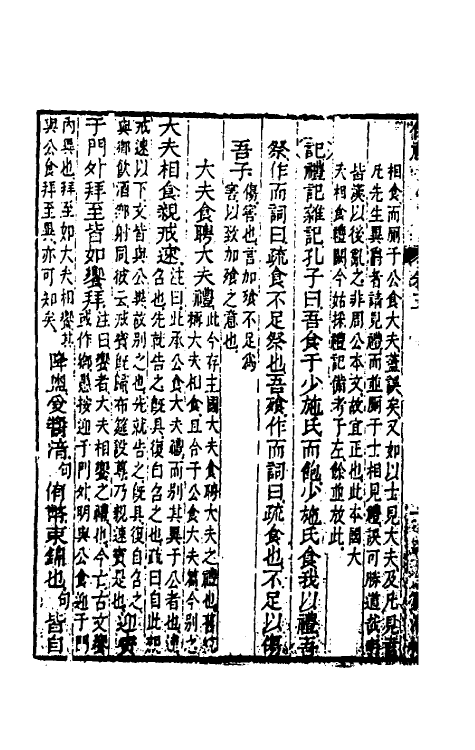 相食而厠于公食大夫蓋誤矣又如以士見大夫及凡見
凡先生異爵者請見禮而並厠于士相見禮誤可勝道哉
皆漢以後亂之非周公本文故宜正也此本國大
夫相食禮闕今始採禮記備考于左餘並放此
記禮記雜記孔子曰吾食于少施氏而飽少施氏食我以禮吾
祭作而詞曰疏食不足祭也吾飱作而詞曰疏食也不足以傷
吾子傷害也言加飱不足爲
害以致加飱之意也
大夫食聘大夫禮此今存主國大夫食聘大夫之禮也舊
稱大夫相食且合于公食大夫篇今別
大夫相食親戒速注曰此承公食大夫禮而別其異于公者也速
召也先就告之旣具復自召之也疏曰自此
戒速以下文皆與公異故別之也先就告之旣具復自召之
與鄉飲酒鄉射同彼云戒賓旣歸布筵設尊乃親速賓是也迎賓
于門外拜至皆如饗拜注曰饗者大夫相饗之禮也今亡古文饗
或作鄉愚按迎于門外明與公食迎于門
內異也拜至如大夫相饗
與公食拜至異亦可知矣降盥受醬湆句侑幣束錦也句皆自